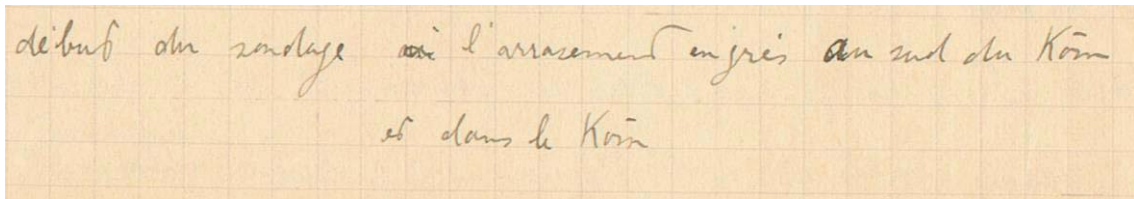 début du sondage à l'arrasement en grès au sud du Kôm
et dans le Kôm